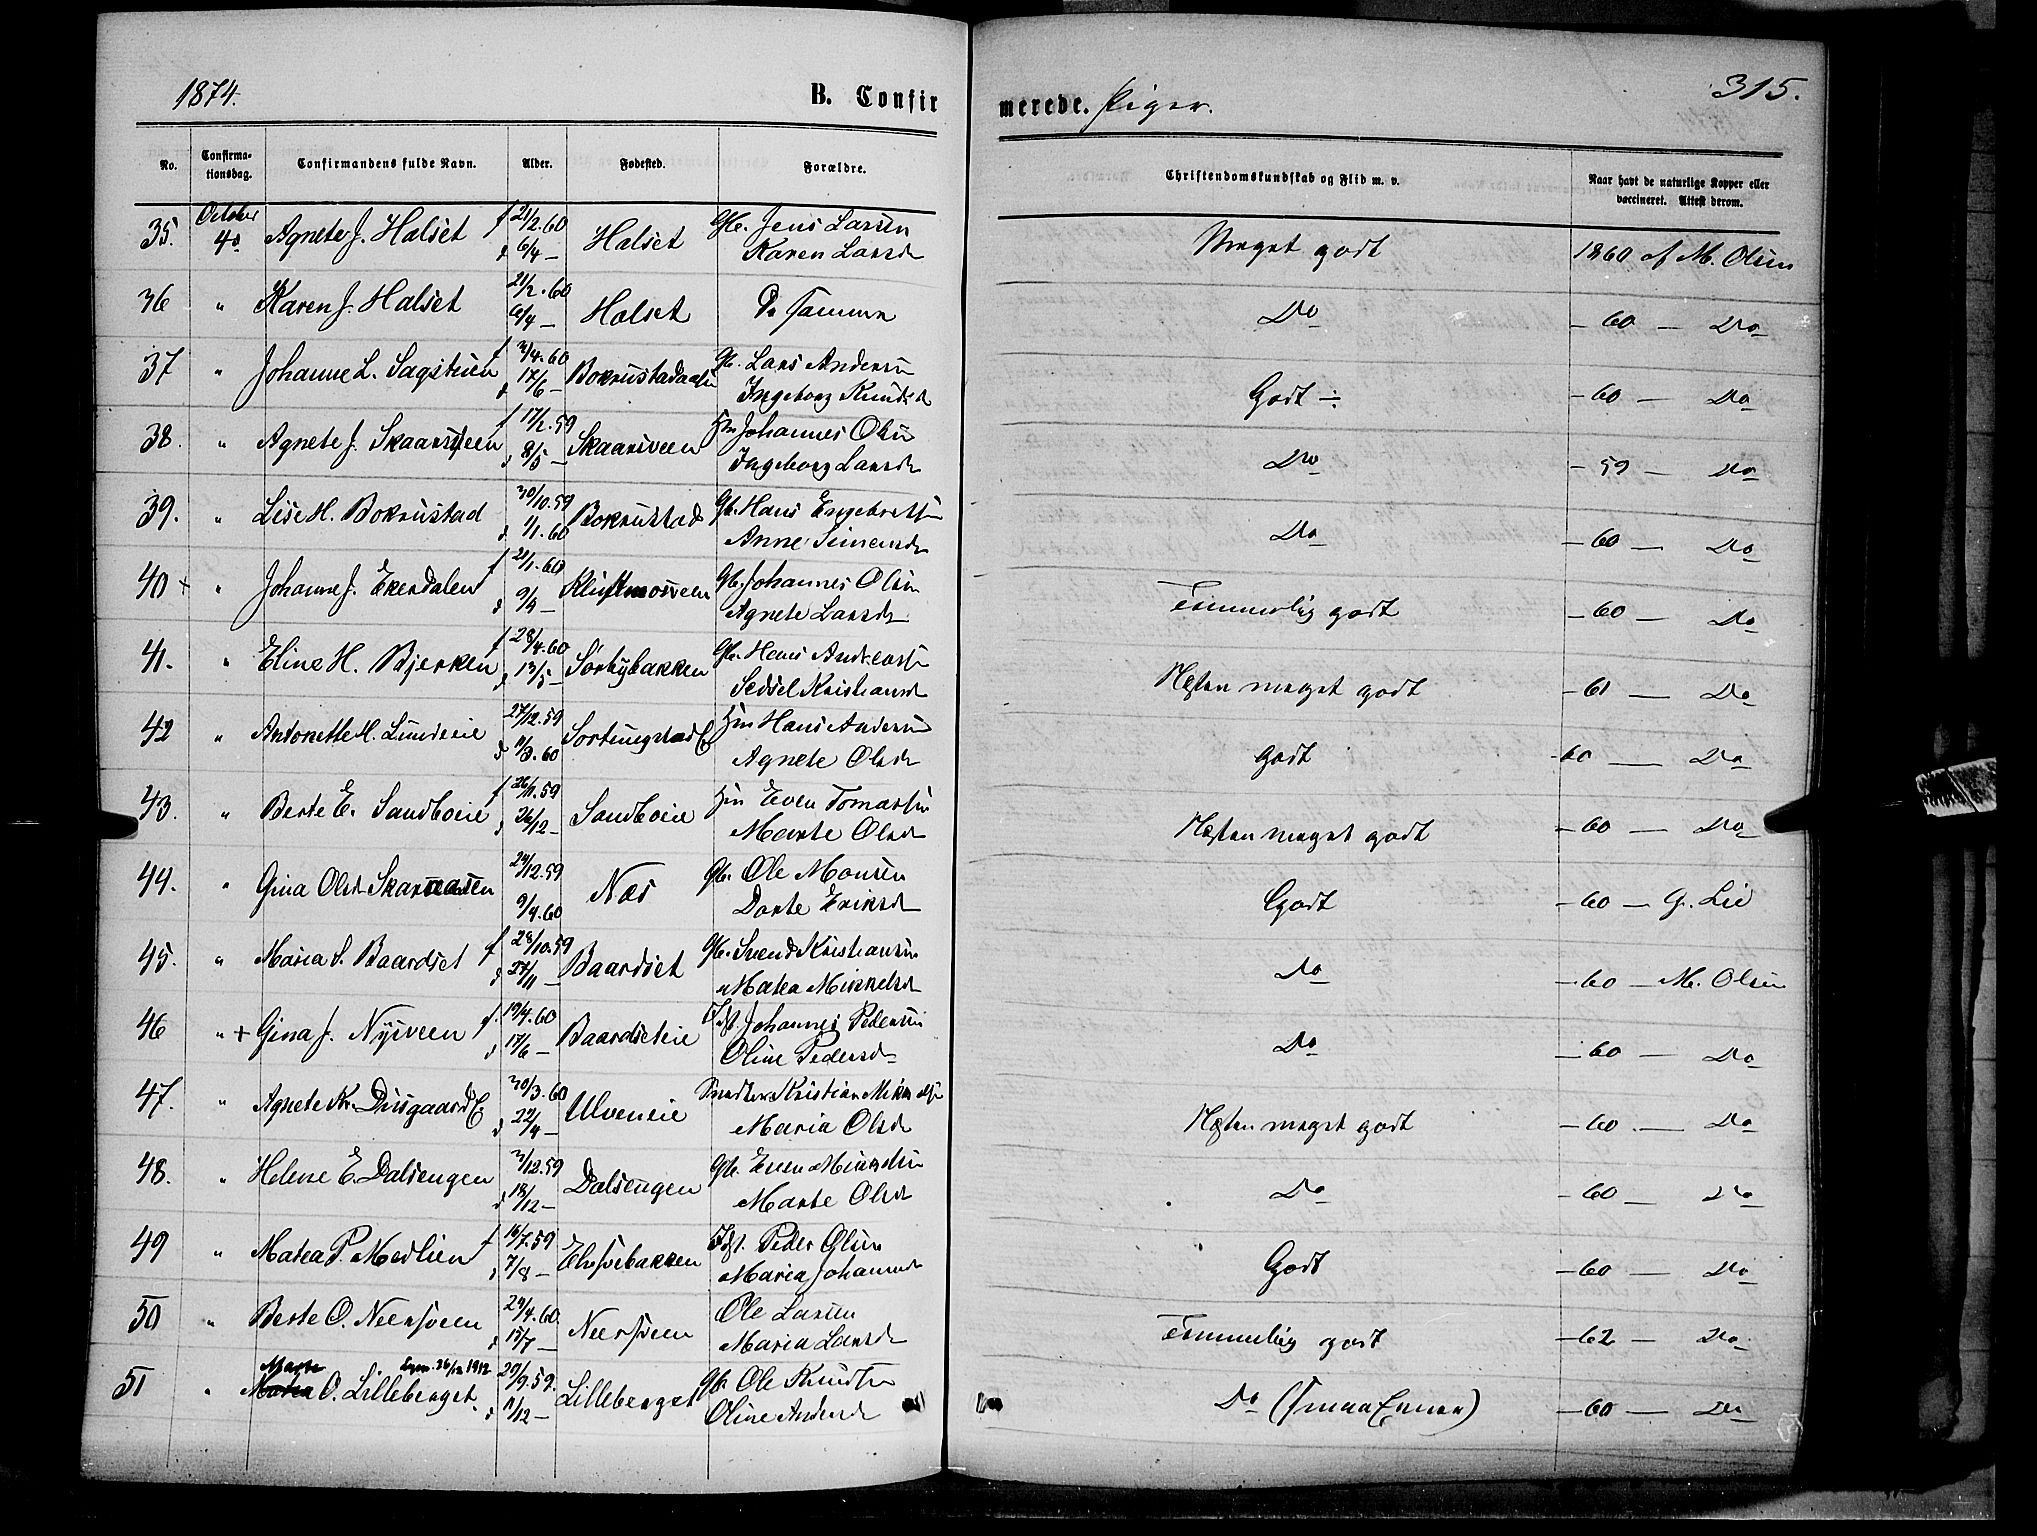 1874.
B. Confir
merede. Piger.
315.
No.
Confirma-
tionsdag.
Confirmandens fulde Navn.
Alder.
Fødested.
Forældre.
Christendomskundskab og Flid m. v.
Naar havt de naturlige Kopper eller
vaccineret. Attest derom.
35. October 4de Agnete J. Halset f 21/2.60 Halset Gb. Jens Larsen Meget godt 1860 af M. Olsen
d 6/4 — Karen Larsd
36 " Karen J. Halset 21/2.60 Halset De Samme Do — 60 — Do
6/4 —
37 " Johanne L. Sagstuen f 3/4.60 Gb. Lars Andersen Godt ÷ — 60 — Do
d 17/6 — Ingeborg Knudsd
38. " Agnete J. Skaarsveen f 17/2.59 Skaarsveen Hm Johannes Olsen Do — 59 — Do
d 8/5 — Ingeborg Larsd
39. " Lise H. Bokrustad 30/10.59 Bokrustad Gb. Hans Engebretsen Do — 60 — Do
d 1/1.60 Anne Simensd
40 + " Johanne J. Ekerdalen f 21/1.60 Gb. Johannes Olsen Temmelig godt — 60 — Do
d 9/4 — Agnete Larsd
41. " Eline H. Bjerken f 28/4.60 Sørbybakken Gb. Hans Andreasen Næsten meget godt — 61 — Do
d 13/5 — Sedsel Kristiansd
42 " Antonette H. Lundeeie 27/12.59 Hm Hans Andersen godt 60 — Do
d 11/3.60 Agnete Olsd
43. " Berte E. Sandboeie f 26/11.59 Sandboeie Hm Even Tomassen Næsten meget godt — 60 — Do
d 26/12 — Marte Olsd
44. " Gina Olsd 24/12.59 Næs Gb. Ole Monsen Godt — 60 — G. Lie
9/4.60 Dorte Eriksd
45. " Maria S. Baardset f 28/10.59 Baardset Gb. Svend Kristiansen Do — 60 — M. Olsen
d 27/11 — Matea Mikkelsd
46 " + Gina J. Nysveen f. 19/4.60 Baardseteie Idst. Johannes Pedersen Do — 60 — Do
d 17/6 — Oline Pedersd
47. " Agnete Kr. Diisgaard E. 30/3.60 Ulveneie Kristian Næsten meget godt — 60 — Do
d 22/4 — Maria Olsd
48. " Helene E. Dalsengen 3/12.59 Dalsengen Gb. Even Do — 60 — Do
d 18/12 — Marte Olsd
49 " Matea P. Moelien f 16/7.59 Idst. Peder Olsen Godt — 60 — Do
d 7/8 — Maria Johannesd
50 " Berte O. Neersveen 29/4.60 Neersveen Ole Larsen Temmelig godt — 62 — Do
d 15/7 — Maria Larsd
51 " Marte 26/12 1912
Matea O. Lilleberget. 20/9.59. Lilleberget Gb. Ole Knudsen Do (smaa Evner) — 60 — Do
d 11/12 — Oline Andersd